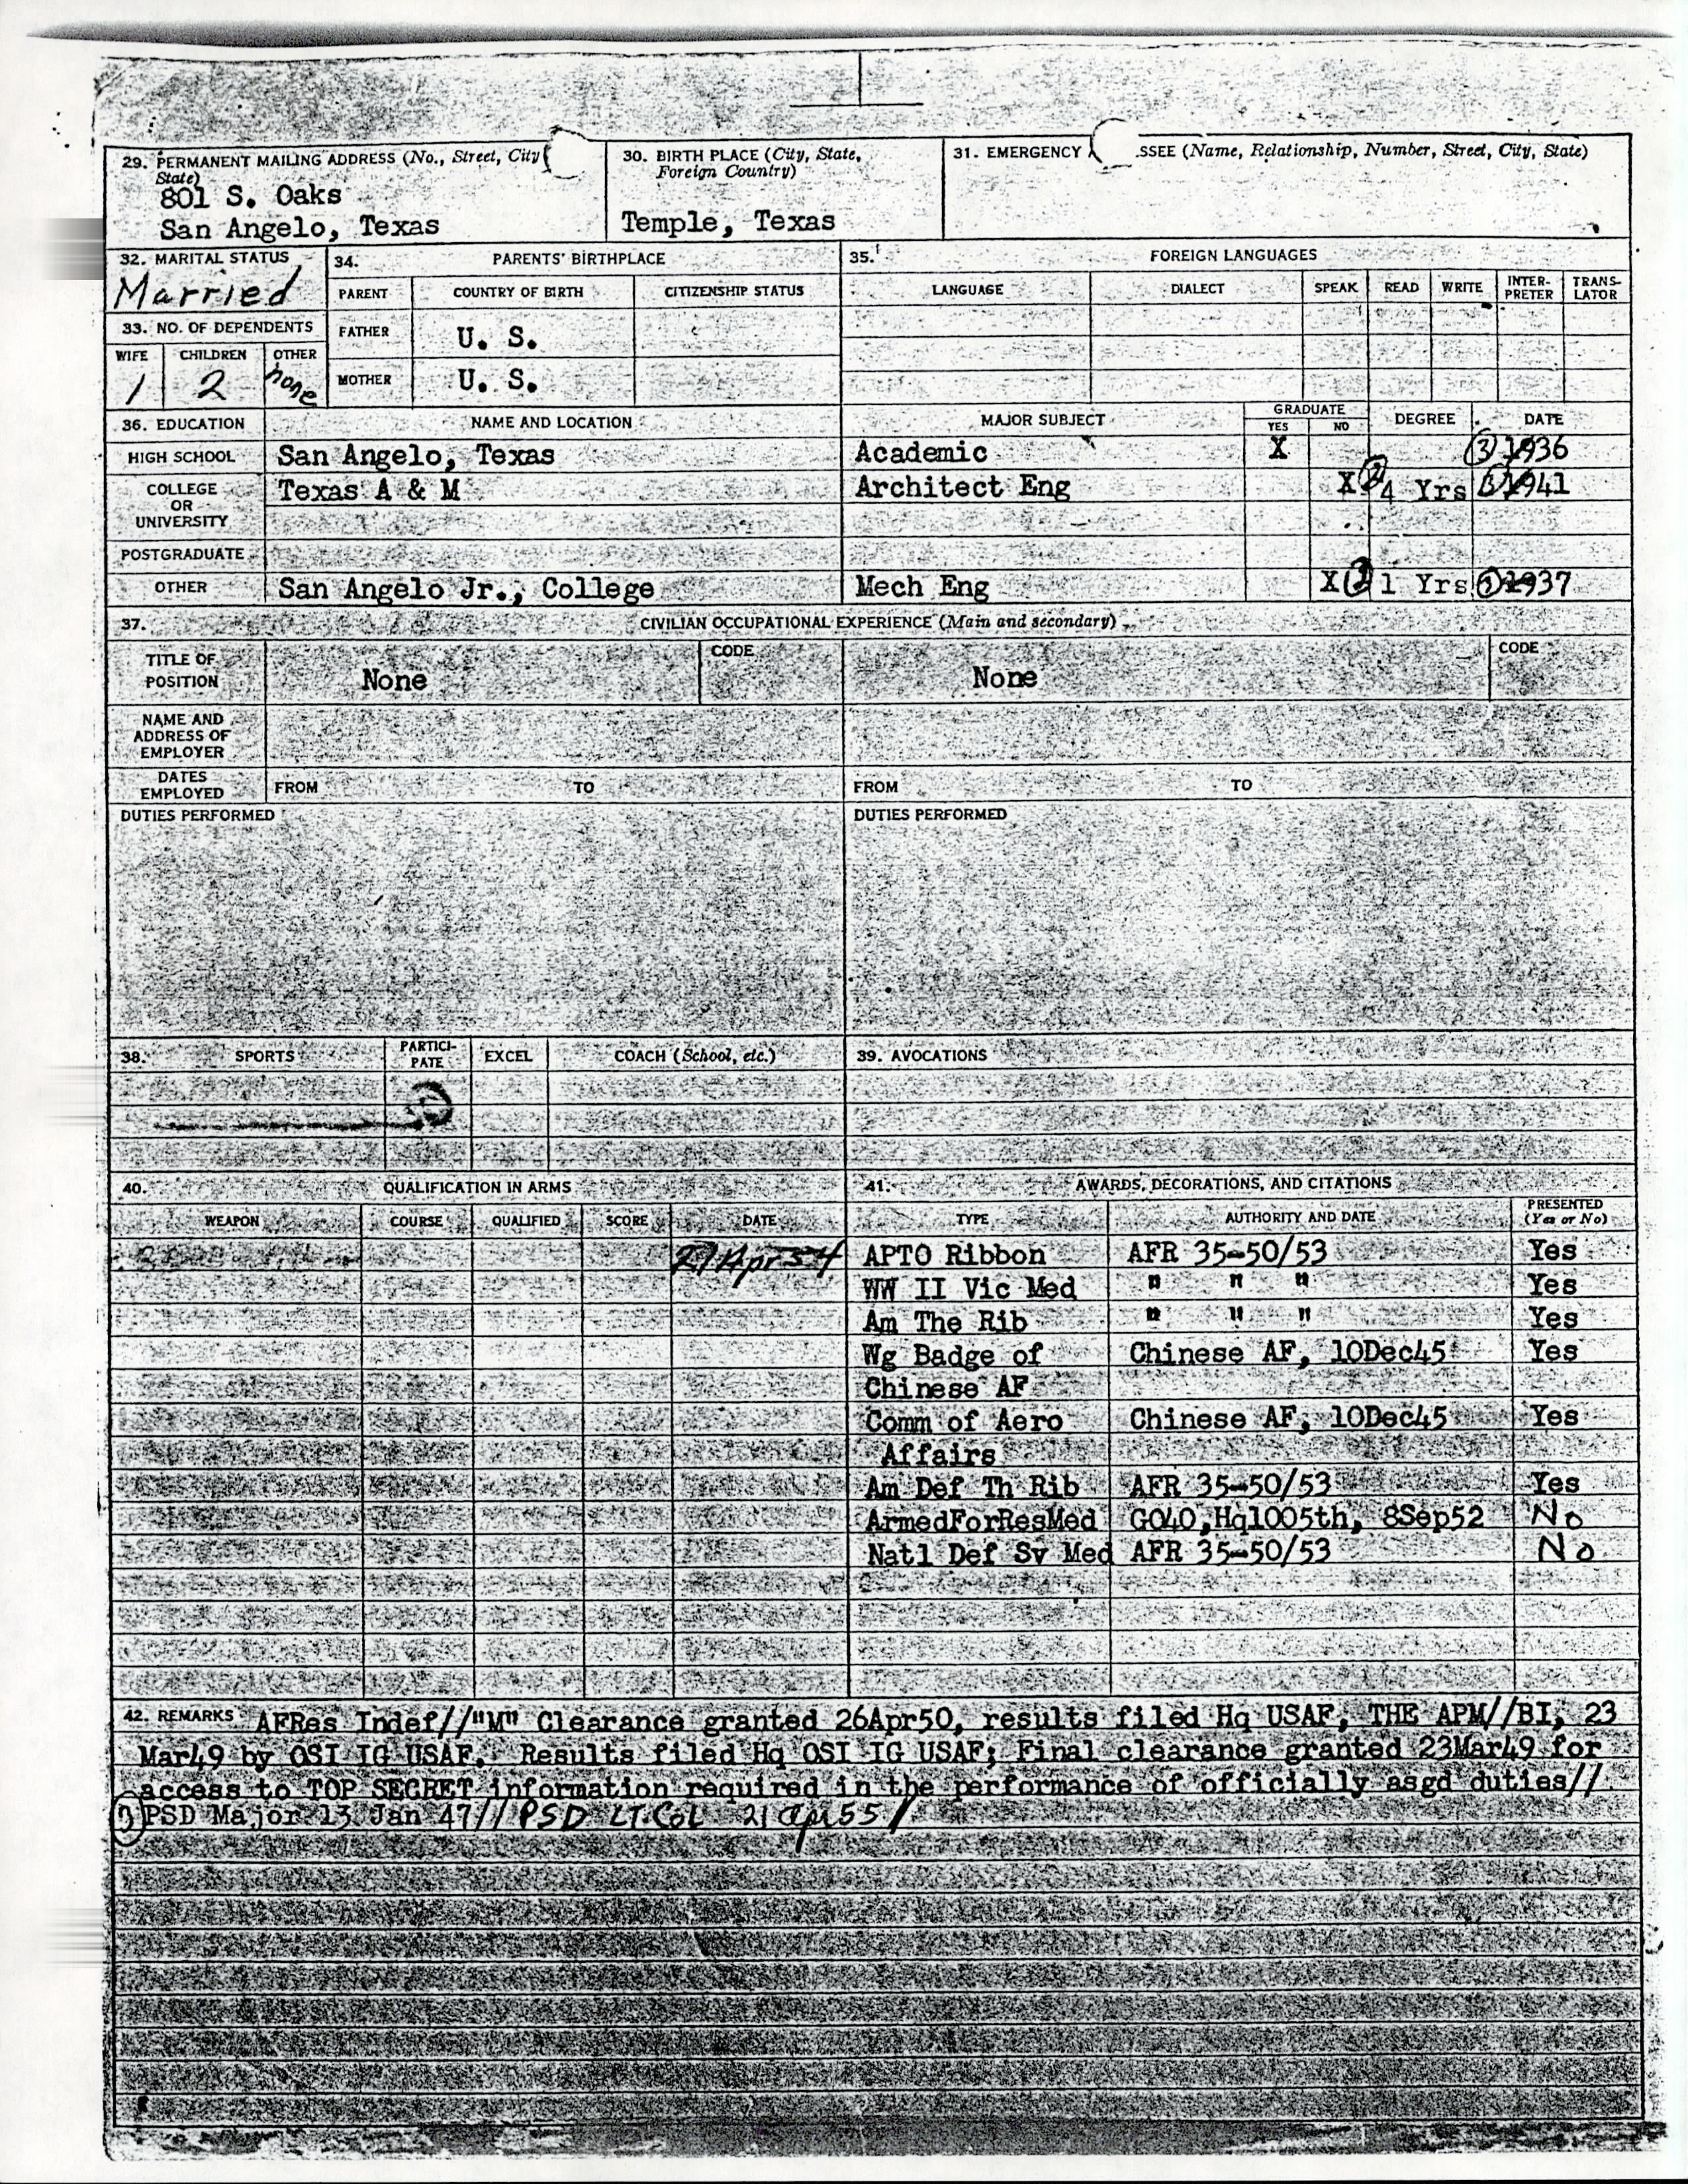 29. PERMANENT MAILING ADDRESS (No., Street, City
State)
801 S. Oaks
San Angelo, Texas
30. BIRTH PLACE (City, State,
Foreign Country)
Temple, Texas
31. EMERGENCY SSEE (Name, Relationship, Number, Street, City, State)
32. MARITAL STATUS
Married
33. NO. OF DEPENDENTS
WIFE CHILDREN OTHER
1 2 none
34. PARENTS' BIRTHPLACE
PARENT COUNTRY OF BIRTH CITIZENSHIP STATUS
FATHER U. S.
MOTHER U. S.
35. FOREIGN LANGUAGES
LANGUAGE DIALECT SPEAK READ WRITE INTER-PRETER TRANS-LATOR
36. EDUCATION NAME AND LOCATION MAJOR SUBJECT GRADUATE YES NO DEGREE DATE
HIGH SCHOOL San Angelo, Texas Academic X 1936
COLLEGE OR UNIVERSITY Texas A & M Architect Eng X 4 Yrs 1941
POSTGRADUATE
OTHER San Angelo Jr., College Mech Eng X 1 Yrs 1937
37. CIVILIAN OCCUPATIONAL EXPERIENCE (Main and secondary)
TITLE OF POSITION None CODE None CODE
NAME AND ADDRESS OF EMPLOYER
DATES EMPLOYED FROM TO FROM TO
DUTIES PERFORMED DUTIES PERFORMED
38. SPORTS PARTICI-PATE EXCEL COACH (School, etc.) 39. AVOCATIONS
40. QUALIFICATION IN ARMS
WEAPON COURSE QUALIFIED SCORE DATE
27 Apr 54
41. AWARDS, DECORATIONS, AND CITATIONS
TYPE AUTHORITY AND DATE PRESENTED (Yes or No)
APTO Ribbon AFR 35-50/53 Yes
WW II Vic Med " " " Yes
Am The Rib " " " Yes
Wg Badge of Chinese AF, 10Dec45 Yes
Chinese AF
Comm of Aero Chinese AF, 10Dec45 Yes
Affairs
Am Def Th Rib AFR 35-50/53 Yes
ArmedForResMed GO40,Hq1005th, 8Sep52 No
Natl Def Sv Med AFR 35-50/53 No
42. REMARKS AFRes Indef//"M" Clearance granted 26Apr50, results filed Hq USAF, THE APM//BI, 23
Mar49 by OSI IG USAF. Results filed Hq OSI IG USAF; Final clearance granted 23Mar49 for
access to TOP SECRET information required in the performance of officially asgd duties//
3 PSD Major 13 Jan 47// PSD LT.COL 21 Apr 55/